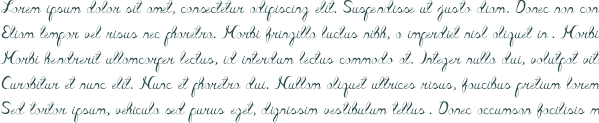 Lorem ipsum dolor sit amet, consectetur adipiscing elit. Suspendisse ut justo diam. Donec non con
Etiam tempor vel risus nec pharetra. Morbi fringilla luctus nibh, a imperdiet nisl aliquet in . Morbi
Morbi hendrerit ullamcorper lectus, id interdum lectus commodo at. Integer nulla dui, volutpat vit
Curabitur et nunc elit. Nunc et pharetra dui. Nullam aliquet ultrices risus, faucibus pretium lorem
Sed tortor ipsum, vehicula sed purus eget, dignissim vestibulum tellus . Donec accumsan facilisis m